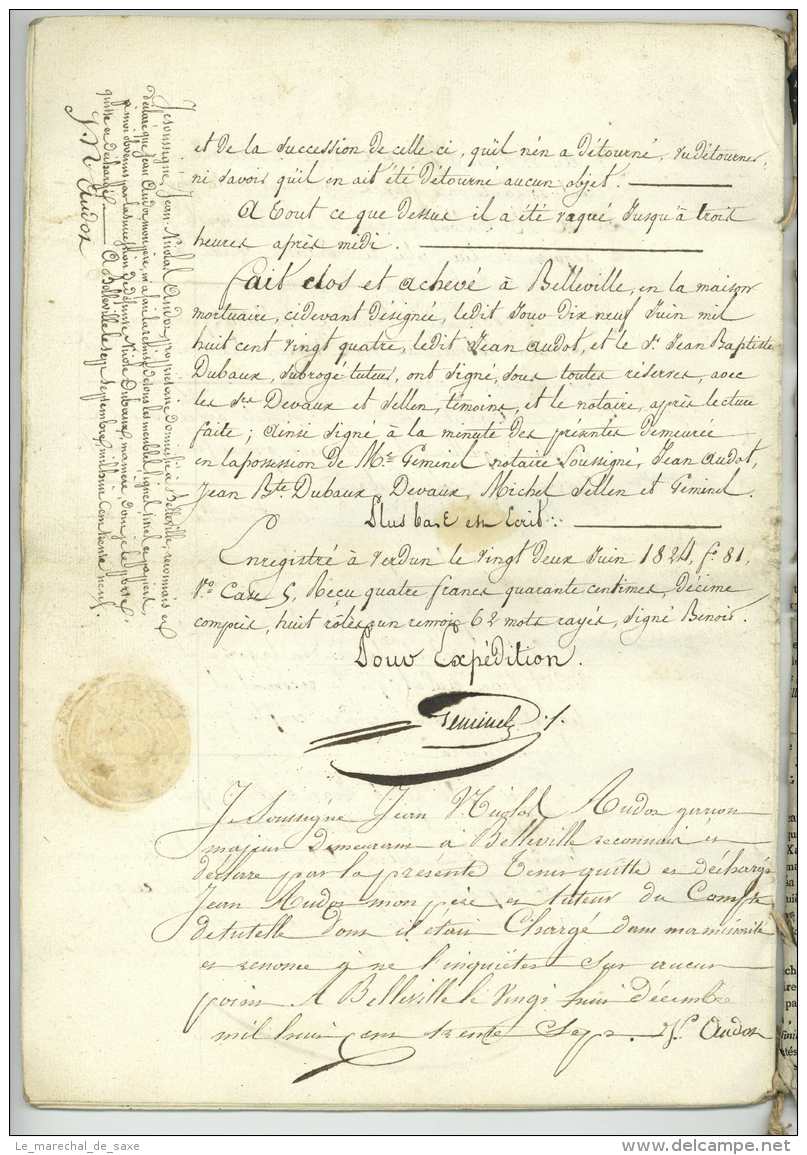 et de la succession de celle ci, qu'il n'en a détourné, vu détourner,
ni savoir qu'il en ait été détourné aucun objet.
A tout ce que dessus il a été vaqué jusqu'à trois
heures après midi.
fait clos et achevé à Belleville, en la maison
mortuaire, cidevant désignée, ledit jour dix neuf Juin mil
huit cent vingt quatre, ledit Jean Audot, et le Sr. Jean Baptiste
Dubaux, subrogé tuteur, ont signé, sous toutes réserves, avec
les Srs Devaux et Sellen, témoins, et le notaire, après lecture
faite; ainsi signé à la minute des présentes demeurée
en la possession de Me Geminel notaire soussigné, Jean Audot,
Jean Bte Dubaux Devaux, Michel Sellen et Geminel.
Plus bas est écrit:
Enregistré à verdun le vingt deux Juin 1824, fo 81,
Vo Case 5, Reçu quatre francs quarante centimes, décime
compris, huit rôles un renvoi 62 mots rayés, signé Benoit.
Pour Expédition.
Geminel
Je Soussigné Jean Nicolas Audot garcon
majeur demeurant a Belleville reconnais et
déclare par la présente tenir quitte et décharge
Jean Audot mon père et tuteur du Compte
de tutelle dont il était Chargé dans ma minorité
et renonce à ne l'inquiéter sur aucun
point A Belleville le vingt huit décembre
mil huit cent trente sept. JN Audot
Je soussigné, Jean Nicolas Audot, propriétaire domicilié à Belleville, reconnais et
déclare que Jean Audot mon père, m'a fait la remise de tous les meubles, linges, et papiers,
à moi dévenus par la succession de défunte Dubaux, ma mère, dont je le
quitte et décharge A Belleville le sept septembre mil huit cent trente neuf.
JN Audot
Le_marechal_de_saxe
www.delcampe.net